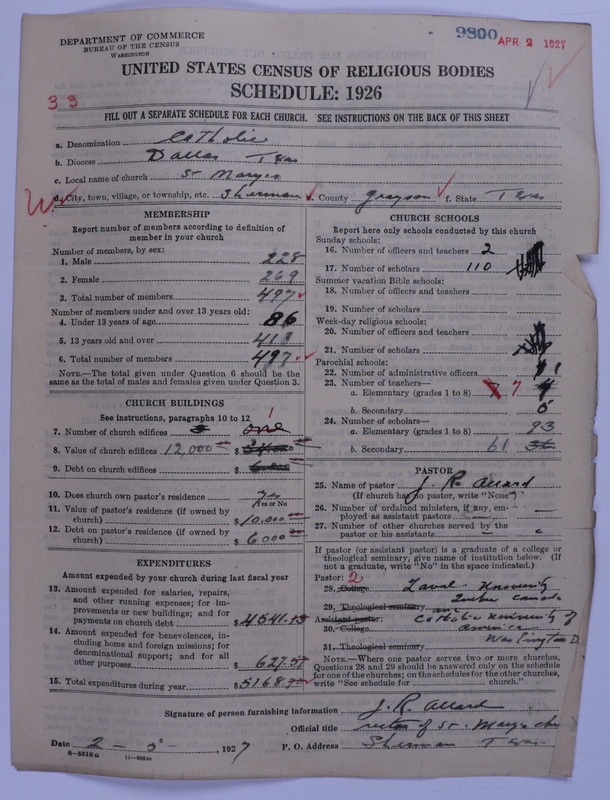 DEPARTMENT OF COMMERCE
BUREAU OF THE CENSUS
WASHINGTON
9800 APR 2 1927
UNITED STATES CENSUS OF RELIGIOUS BODIES
SCHEDULE: 1926
33
FILL OUT A SEPARATE SCHEDULE FOR EACH CHURCH. SEE INSTRUCTIONS ON THE BACK OF THIS SHEET
a. Denomination Catholic
b. Diocese Dallas Texas
c. Local name of church St Marys
d. City, town, village, or township, etc. Sherman e. County Grayson f. State Texas
MEMBERSHIP
Report number of members according to definition of
member in your church
Number of members, by sex:
1. Male 228
2. Female 269
3. Total number of members 497
Number of members under and over 13 years old:
4. Under 13 years of age 86
5. 13 years old and over 411
6. Total number of members 497
NOTE.—The total given under Question 6 should be
same as the total of males and females given under Question 3.
CHURCH BUILDINGS
See instructions, paragraphs 10 to 12
7. Number of church edifices one 1
8. Value of church edifices 12,000 $
9. Debt on church edifices $
10. Does church own pastor's residence yes
Yes or No
11. Value of pastor's residence (if owned by
church) $10.000
12. Debt on pastor's residence (if owned by
church) $6000
EXPENDITURES
Amount expended by your church during last fiscal year
13. Amount expended for salaries, repairs,
and other running expenses; for im-
provements or new buildings; and for
payments on church debt $4541.
14. Amount expended for benevolences, in-
cluding home and foreign missions; for
denominational support; and for all
other purposes $627.
15. Total expenditures during year $5168.
CHURCH SCHOOLS
Report here only schools conducted by this church
Sunday schools:
16. Number of officers and teachers 2
17. Number of scholars 110
Summer vacation Bible schools:
18. Number of officers and teachers
19. Number of scholars
Week-day religious schools:
20. Number of officers and teachers
21. Number of scholars
Parochial schools:
22. Number of administrative officers 1
23. Number of teachers—
a. Elementary (grades 1 to 8) 7
b. Secondary 5
24. Number of scholars—
a. Elementary (grades 1 to 8) 93
b. Secondary 61
PASTOR
25. Name of pastor J. R. Allard
(If church has no pastor, write "None")
26. Number of ordained ministers, if any, em-
ployed as assistant pastors
27. Number of other churches served by the
pastor or his assistants
If pastor (or assistant pastor) is a graduate of a college or
theological seminary, give name of institution below. (If
not a graduate, write "No" in the space indicated.)
Pastor: 2
28. College Laval University
Quebec Canada
29. Theological seminary
Assistant pastor: Catholic University of
30. College America
Washington D.
31. Theological seminary
NOTE.—Where one pastor serves two or more churches,
Questions 28 and 29 should be answered only on the schedule
for one of the churches; on the schedules for the other churches,
write "See schedule for church."
Signature of person furnishing information J. R. Allard
Official title rector of St. Marys
Date 2 - 5 - , 1927 P. O. Address Sherman Texas
8—5518a